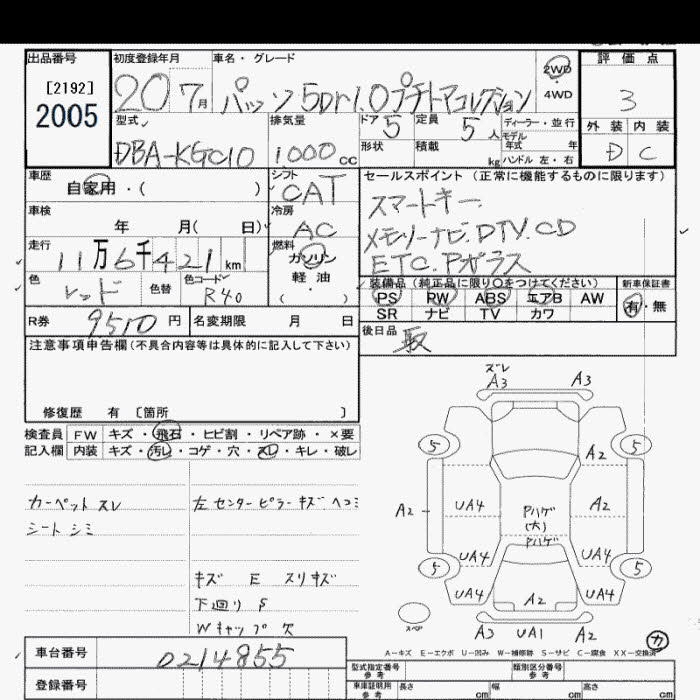 出品番号 初度登録年月 車名・グレード 評価点
[2192]
2005
20 7月 パッソ 5Dr1.0プチトマコレクション
2WD
4WD
3
型式 排気量 ドア 5 定員 5人
ディーラー・並行
モデル年式 年
外装 内装
DBA-KGC10 1000cc
形状 積載 kg
ハンドル 左・右
D C
車歴 シフト セールスポイント (正常に機能するものに限ります)
自家用・( ) CAT
スマートキー.
車検 冷房
年 月( 日) AC
メモリーナビ.DTV.CD
走行 燃料
11万6千421km ガソリン
ETC.Pガラス
色 色替 色コード 軽油
レッド R40 ( ・ )
装備品 (純正品に限り○をつけてください) 新車保証書
PS PW ABS エアB AW
有・無
SR ナビ TV カワ
R券 9510円 名変期限 月 日
後日品 取
注意事項申告欄(不具合内容等は具体的に記入して下さい)
修復歴 有 [箇所 ]
検査員 FW キズ・飛石・ヒビ割・リペア跡・×要
記入欄 内装 キズ・汚レ・コゲ・穴・スレ・キレ・破レ
カーペット スレ
シート シミ
左 センターピラー キズ ヘコミ
キズ E スリキズ
下廻り S
Wキャップ 欠
ズレ
A3 A3
5 5
A2
A2 UA4 Pハゲ A2
(大)
Pハゲ
UA4 UA4
5 5
UA4 A2 UA4
スペア
A3 UA1 A2
カ
A-キズ E-エクボ U-凹み W-補修跡 S-サビ C-腐食 XX-交換済
車台番号 0214855
登録番号
型式指定番号 参考 類別区分番号 参考
車車証明用 参考 長さ cm 幅 cm 高さ cm